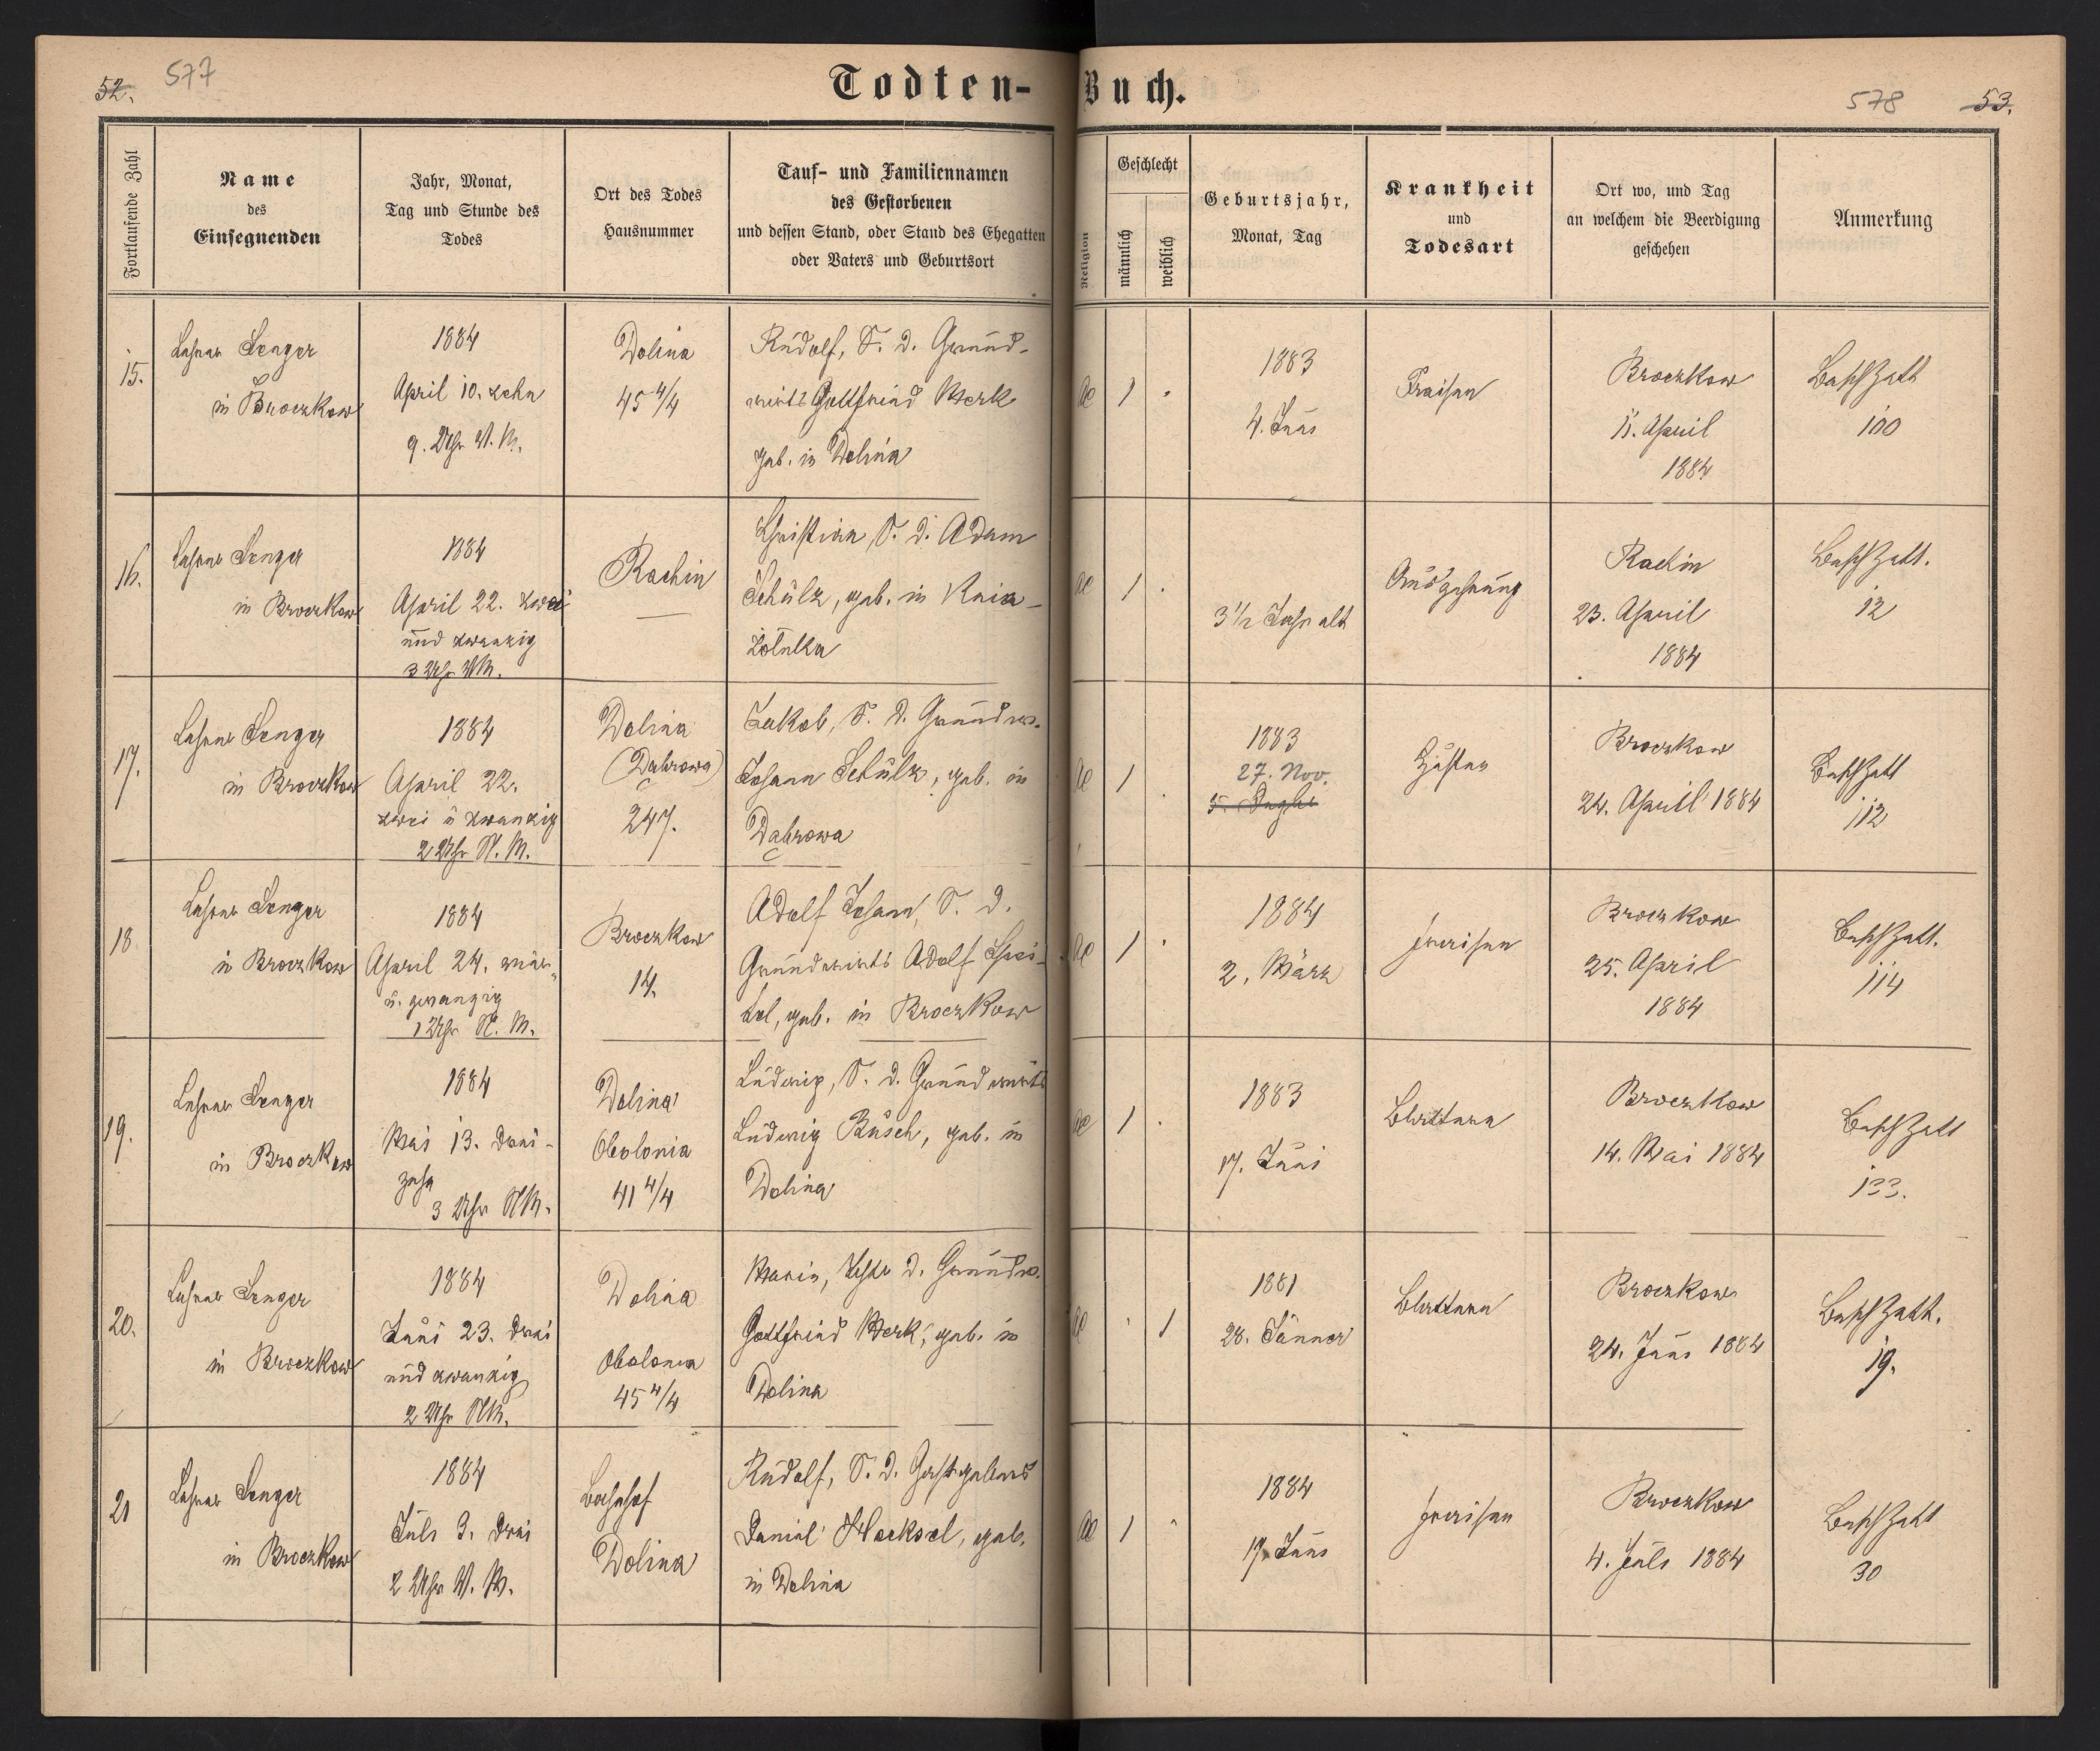 52. 577
Todten-Buch.
578 53.
Fortlaufende Zahl
Name
des
Einsegnenden
Jahr, Monat,
Tag und Stunde des
Todes
Ort des Todes
Hausnummer
Tauf- und Familiennamen
des Gestorbenen
und dessen Stand, oder Stand des Ehegatten
oder Vaters und Geburtsort
Religion
Geschlecht
männlich
weiblich
Geburtsjahr,
Monat, Tag
Krankheit
und
Todesart
Ort wo, und Tag
an welchem die Beerdigung
geschehen
Anmerkung
15.
Lehrer Senger
in Broczkow
1884
April 10. zehn
9. Uhr V. M.
Dolina
45 4/4
Rudolf, S. d. Grund-
wirts Gottfried Merk
geb. in Dolina
ae 1 .
1883
4. Juni
Fraisen
Broczkow
11. April
1884
BeschZett
100
16.
Lehrer Senger
in Broczkow
1884
April 22. zwei
und zwanzig
3 Uhr VM.
Rachin
Christian S. d. Adam
Schulz, geb. in Knia-
żołulka
ae 1 .
3 1/2 Jahr alt
Auszehrung
Rachin
23. April
1884
BeschZett.
12
17.
Lehrer Senger
in Broczkow
1884
April 22.
zwei u zwanzig
2 Uhr N. M.
Dolina
(Dąbrowa)
247.
Jakob, S. d. Grundw.
Johann Schulz, geb. in
Dąbrowa
ae 1 .
1883
27. Nov.
Husten
Broczkow
24. April 1884
BeschZett
112
18.
Lehrer Senger
in Broczkow
1884
April 24. vier
u. zwanzig
1 Uhr N. M.
Broczkow
14.
Adolf Johann, S. d.
Grundwirts Adolf Spei-
tel, geb. in Broczkow
ae 1 .
1884
2. März
Fraisen
Broczkow
25. April
1884
BeschZett.
114
19.
Lehrer Senger
in Broczkow
1884
Mai 13. drei-
zehn
3 Uhr NM.
Dolina
Obolonia
41 4/4
Ludwig, S. d. Grundwirts
Ludwig Busch, geb. in
Dolina
ae 1 .
1883
17. Juni
Blattern
Broczkow
14. Mai 1884
BeschZett
133.
20.
Lehrer Senger
in Broczkow
1884
Juni 23. drei
und zwanzig
2 Uhr NM.
Dolina
Obolonia
45 4/4
Maria, Tchtr d. Grundw.
Gottfried Merk, geb. in
Dolina
ae . 1
1881
28. Jänner
Blattern
Broczkow
24. Juni 1884
BeschZett.
19.
21
Lehrer Senger
in Broczkow
1884
Juli 3. drei
2 Uhr V. M.
Bahnhof
Dolina
Rudolf, S. d. Gastgebers
Daniel Hecksel, geb.
in Dolina
ae 1 .
1884
17. Juni
Fraisen
Broczkow
4. Juli 1884
BeschZett
30